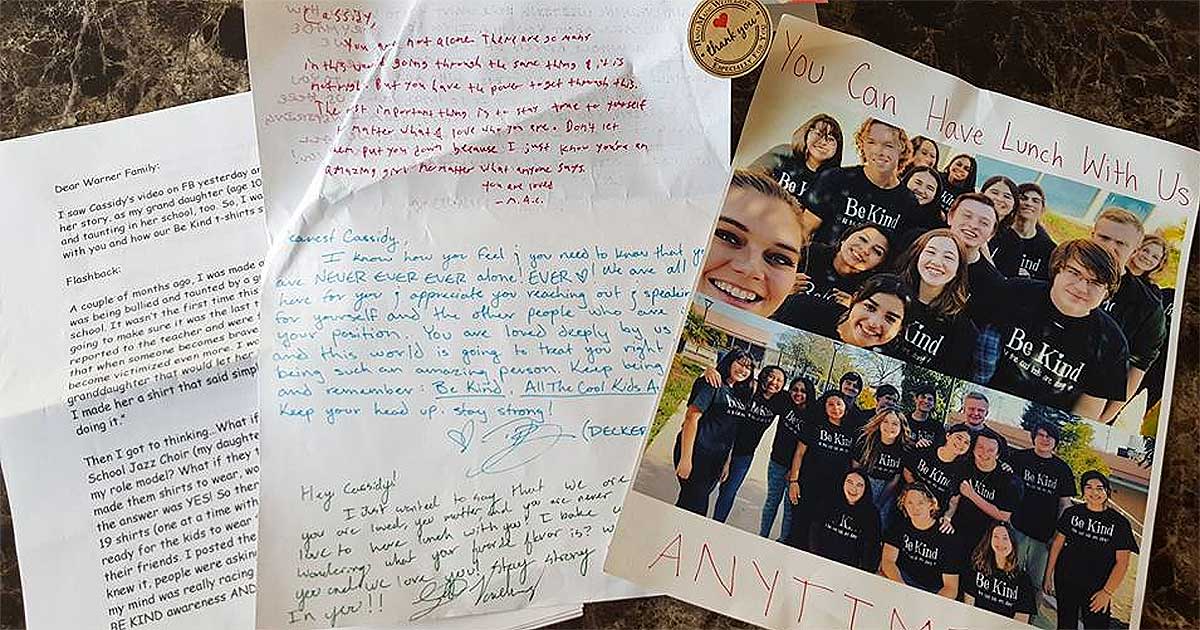 Dear Warner Family:
I saw Cassidy's video on FB yesterday an
her story, as my grand daughter (age 10
and taunting in her school, too. So, I wa
with you and how our Be Kind t-shirts s
Flashback:
A couple of months ago, I was made a
was being bullied and taunted by a g
school. It wasn't the first time this
going to make sure it was the last t
reported to the teacher and were
that when someone becomes brave
become victimized even more. I w
granddaughter that would let her
I made her a shirt that said simpl
doing it."
Then I got to thinking...What if
School Jazz Choir (my daughte
my role model? What if they t
made them shirts to wear, wo
the answer was YES! So then
19 shirts (one at a time with
ready for the kids to wear
their friends. I posted the
knew it, people were askin
my mind was really racing
BE KIND awareness AND
Cassidy,
You are not alone. There are so many
in this world going through the same thing & it is
not right. But you have the power to get through this.
The most important thing is to stay true to yourself
matter what & love who you are. Don't let
them put you down because I just know you're an
amazing girl no matter what anyone says.
You are loved
earest Cassidy,
I know how you feel & you need to know that y
are NEVER EVER EVER alone! EVER ♡! We are all
here for you & appreciate you reaching out & speakin
for yourself and the other people who are i
your position. You are loved deeply by us
and this world is going to treat you right
being such an amazing person. Keep being
and remember: Be Kind. All The Cool Kids A
Keep your head up. stay strong!
(DECKER
Hey Cassidy!
I just wanted to say that we are
you are loved, you matter and you are never
love to have lunch with you! I bake
wondering what your favorite flavor is? W
you and we love you! Stay strong
In you!!
thank you
ESPECIALLY FOR YOU
You Can Have Lunch With Us
Be K
Be Kind
ind
Kind
Be Kind
all the cool kids are doing it
Be Kind
Be Kind
Kind
Kind
Be Kind
all the cool kids are doing it
Be Kind
Be Kind
ANYTIM